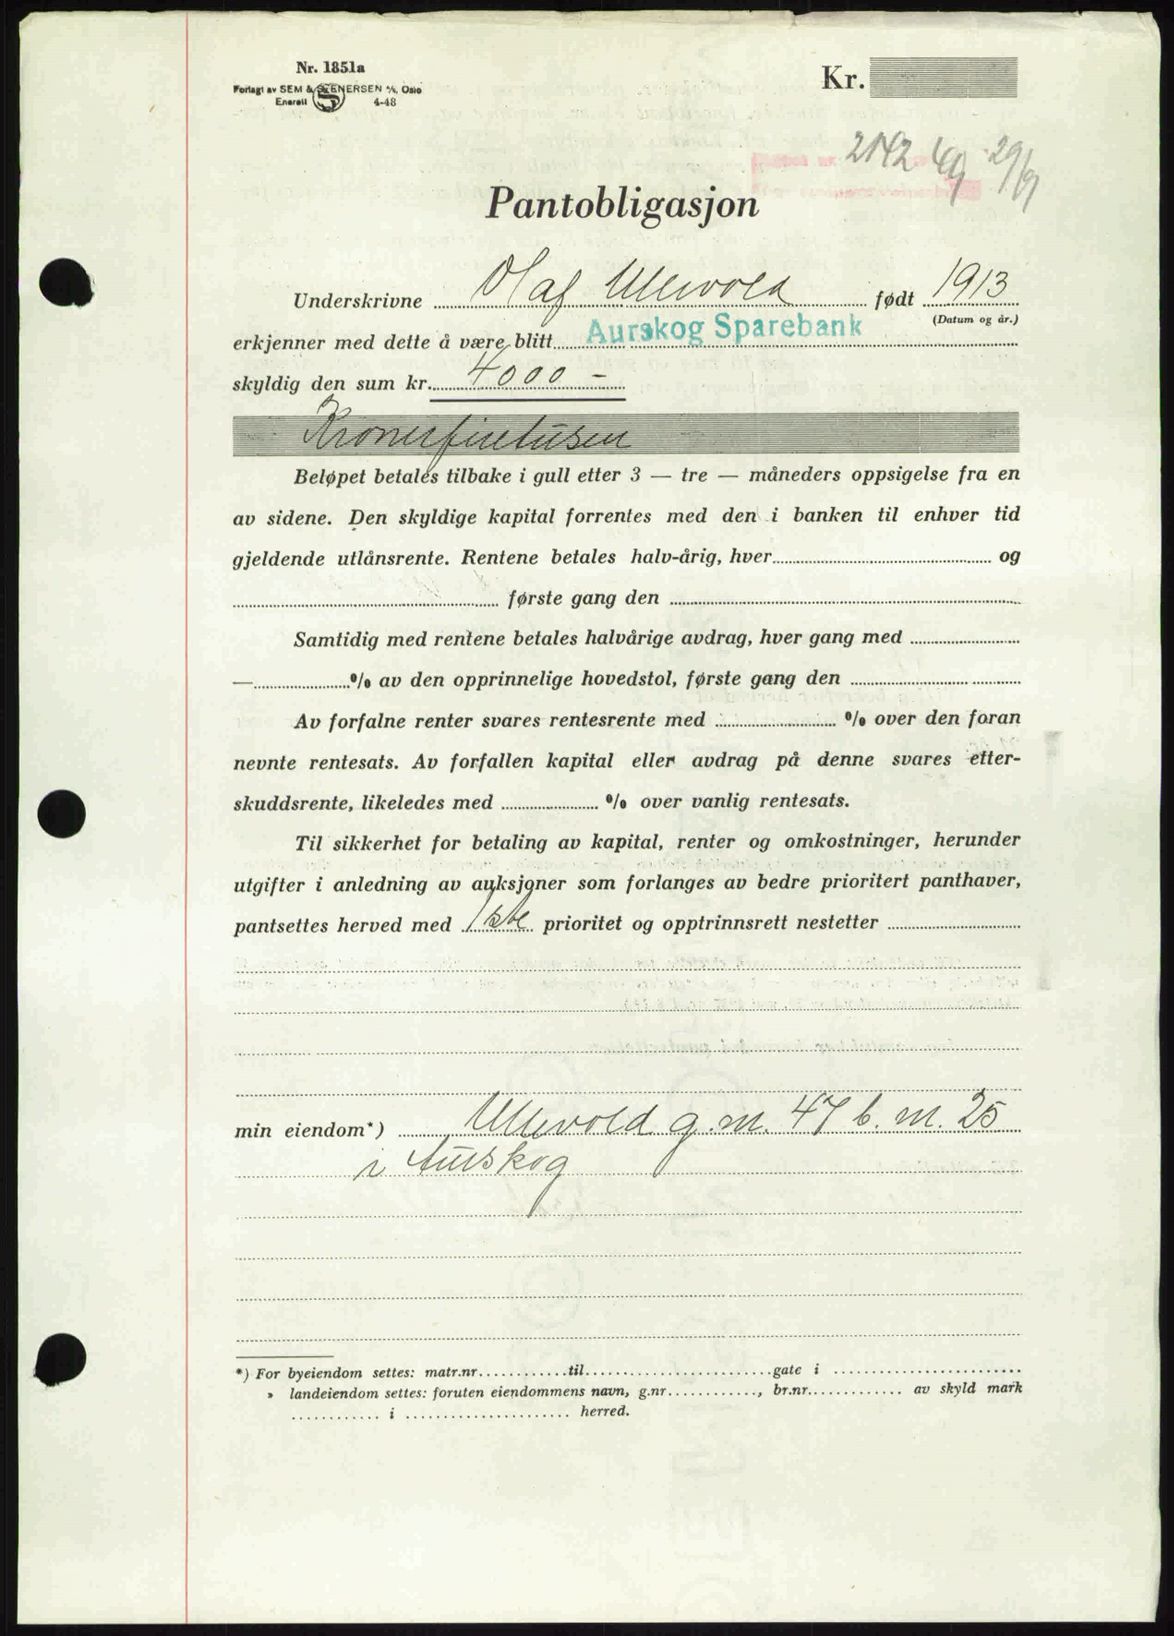 Nr. 1851a
Forlagt av SEM & STENERSEN A/S, Oslo
Enerett 4-48
Kr.
2142 49 29/9
Pantobligasjon
Underskrivne Olaf Ullevold født 1913
(Datum og år.)
erkjenner med dette å være blitt Aurskog Sparebank
skyldig den sum kr. 4000 –
Kronerfiretusen
Beløpet betales tilbake i gull etter 3 — tre — måneders oppsigelse fra en
av sidene. Den skyldige kapital forrentes med den i banken til enhver tid
gjeldende utlånsrente. Rentene betales halv-årig, hver og
første gang den
Samtidig med rentene betales halvårige avdrag, hver gang med
— % av den opprinnelige hovedstol, første gang den
Av forfalne renter svares rentesrente med % over den foran
nevnte rentesats. Av forfallen kapital eller avdrag på denne svares etter-
skuddsrente, likeledes med % over vanlig rentesats.
Til sikkerhet for betaling av kapital, renter og omkostninger, herunder
utgifter i anledning av auksjoner som forlanges av bedre prioritert panthaver,
pantsettes herved med 1ste prioritet og opptrinnsrett nestetter
min eiendom*) Ullevold g. m. 47 b. m. 25
i Aurskog
*) For byeiendom settes: matr.nr. til gate i
» landeiendom settes: foruten eiendommens navn, g.nr. , br.nr. av skyld mark
i herred.